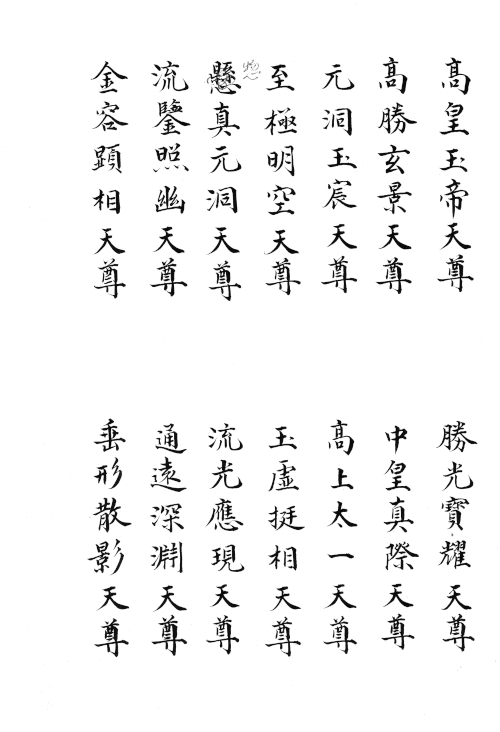 高皇玉帝天尊
勝光寶耀天尊
高勝玄景天尊
中皇真際天尊
元洞玉宸天尊
高上太一天尊
至極明空天尊
玉虛挺相天尊
懸真元洞天尊
流光應現天尊
流鑒照幽天尊
通遠深淵天尊
金容顕相天尊
垂形散影天尊